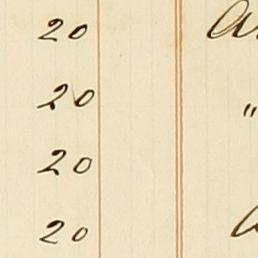 20
20 "
20
20